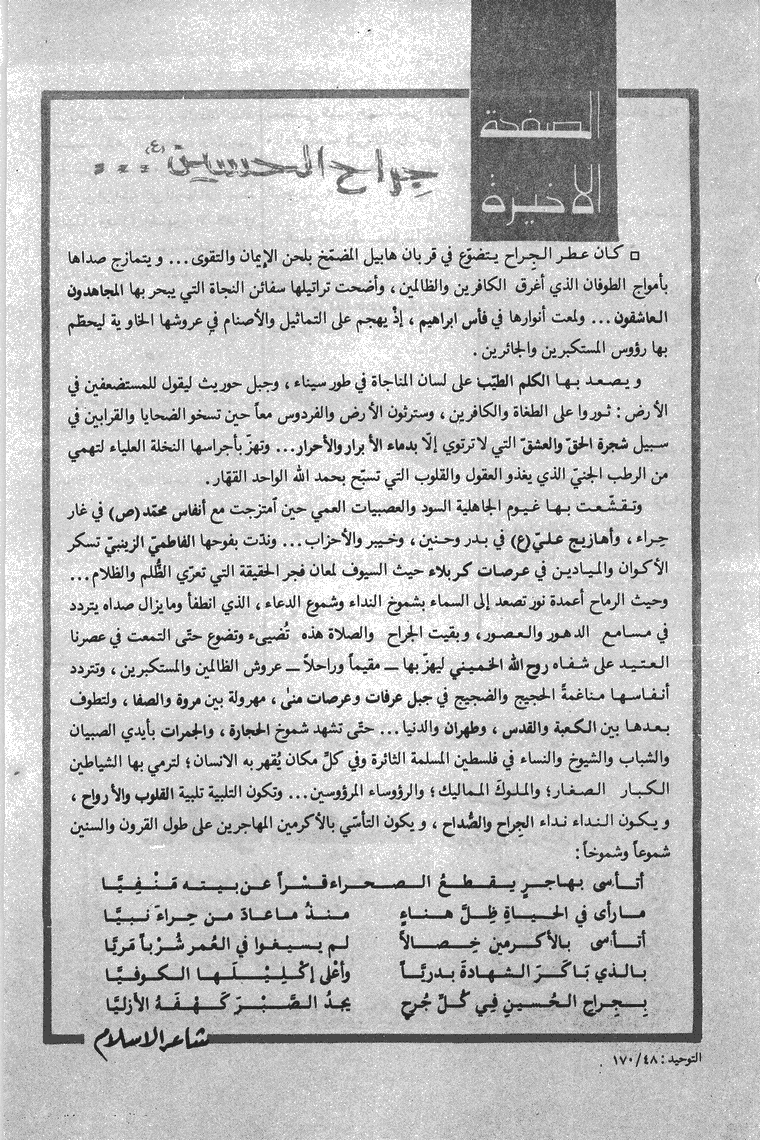 الصفحة
الأخيرة
جراح الحسين (ع) ...
□ كان عطر الجِراح يتضوّع في قربان هابيل المضمّخ بلحن الإيمان والتقوى... ويتمازج صداها
بأمواج الطوفان الذي أغرق الكافرين والظالمين ، وأضحت تراتيلها سفائن النجاة التي يبحر بها المجاهدون
العاشقون... ولمعت أنوارها في فأس ابراهيم ، إذْ يهجم على التماثيل والأصنام في عروشها الخاوية ليحطّم
بها رؤوس المستكبرين والجائرين .
ويصعد بها الكلم الطيّب على لسان المناجاة في طور سيناء ، وجبل حوريث ليقول للمستضعفين في
الأرض : ثوروا على الطغاة والكافرين ، وسترثون الأرض والفردوس معاً حين تسخو الضحايا والقرابين في
سبيل شجرة الحقّ والعشق التي لا ترتوي إلّا بدماء الأبرار والأحرار... وتهزّ بأجراسها النخلة العلياء لتهمي
من الرطب الجنيّ الذي يغذو العقول والقلوب التي تسبّح بحمد الله الواحد القهّار .
وتقشّعت بها غيوم الجاهلية السود والعصبيات العمي حين امتزجت مع أنفاس محمّد (ص) في غار
حِراء ، وأهازيج عليّ (ع) في بدر وحنين ، وخيبر والأحزاب... وندّت بفوحها الفاطميّ الزينبيّ تسكر
الأكوان والميادين في عرصات كربلاء حيث السيوف لمعان فجر الحقيقة التي تعرّي الظُّلم والظلام...
وحيث الرماح أعمدة نور تصعد إلى السماء بشموخ النداء وشموع الدعاء ، الذي انطفأ وما يزال صداه يتردد
في مسامع الدهور والعصور، وبقيت الجراح والصلاة هذه تُضيىء وتضوع حتّى التمعت في عصرنا
العتيد على شفاه روح الله الخميني ليهزّ بها ــ مقيماً وراحلاً ــ عروش الظالمين والمستكبرين ، وتتردد
أنفاسها مناغمةً الحجيج والضجيج في جبل عرفات وعرصات منىٰ ، مهرولة بين مروة والصفا ، ولتطوف
بعدها بين الكعبة والقدس ، وطهران والدنيا... حتّى تشهد شموخ الحجارة ، والجمرات بأيدي الصبيان
والشباب والشيوخ والنساء في فلسطين المسلمة الثائرة وفي كلّ مكان يُقهر به الانسان ؛ لترمي بها الشياطين
الكبار الصغار؛ والملوكَ المماليك ؛ والرؤوساء المرؤوسين... وتكون التلبية تلبية القلوب والأرواح ،
ويكون النداء نداء الجِراح والصُّداح ، ويكون التأسّي بالأكرمين المهاجرين على طول القرون والسنين
شموعاً وشموخاً :
أتأسى بهاجرٍ يقطعُ الصحراء قسْراً عن بيته مَنْفِيَّا
ما رأى في الحياةِ ظِلَّ هناءٍ منذُ ما عادَ من حِراءَ نبيَّا
أتأسى بالأكرمين خِصالاً لم يسيغوا في العُمر شُرْباً مَريَّا
بالذي بَاكَرَ الشهادةَ بدريَّاً وأعْلى إكْلِيْلَها الكوفيَّا
بِجِراحِ الحُسينِ فِي كُلِّ جُرحٍ يجدُ الصَّبْرَ كَهْفَهُ الأزليَّا
شاعر الاسلام
التوحيد : ٤٨/١٧٠